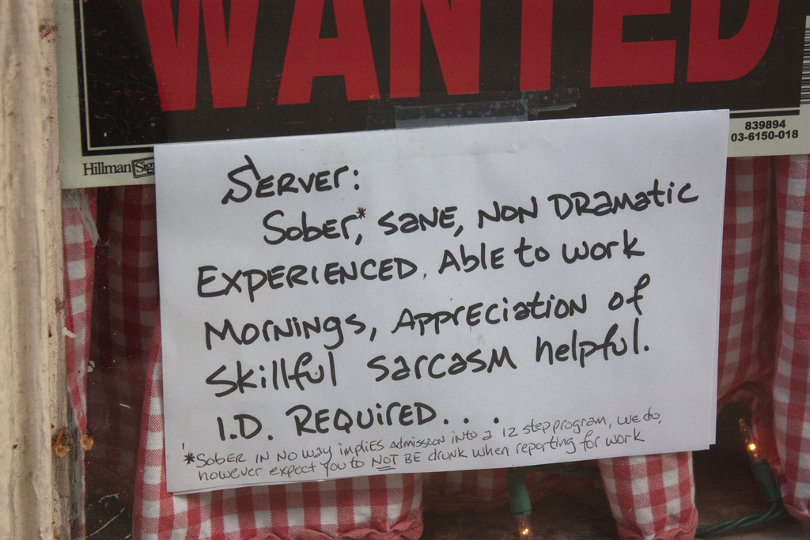 WANTED
839894
03-6150-018
Hillman Sig
SERVER:
Sober,* SANE, NON DRamatic
EXPERIENCED. Able to work
Mornings, Appreciation of
Skillful sarcasm helpful.
I.D. REQUIRED...
*Sober IN NO way implies Admission into a 12 step program, we do,
however expect you to NOT BE drunk when reporting for work